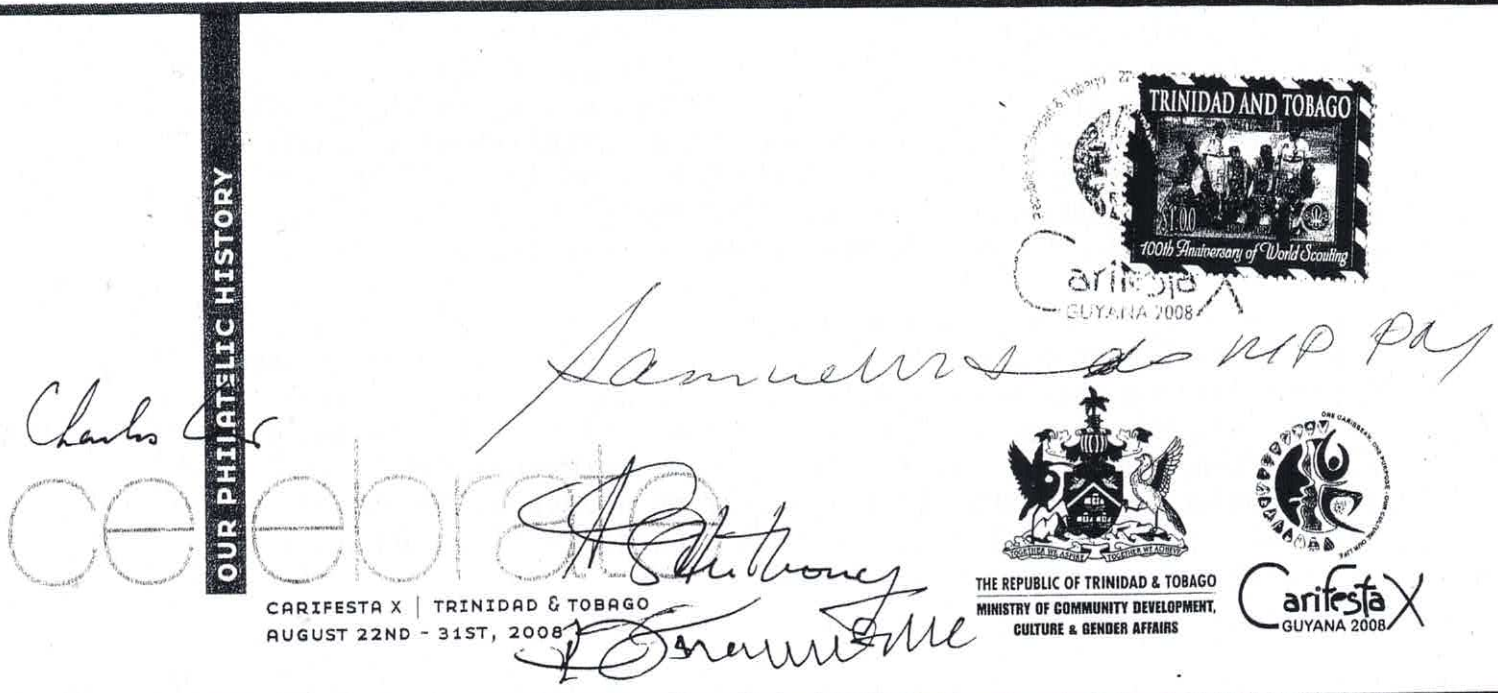 OUR PHILATELIC HISTORY
TRINIDAD AND TOBAGO
$1.00
100th Anniversary of World Scouting
Republic of Trinidad & Tobago 22
Carifesta X
GUYANA 2008
Charles
celebrate
CARIFESTA X | TRINIDAD & TOBAGO
AUGUST 22ND - 31ST, 2008
TOGETHER WE ASPIRE TOGETHER WE ACHIEVE
THE REPUBLIC OF TRINIDAD & TOBAGO
MINISTRY OF COMMUNITY DEVELOPMENT,
CULTURE & GENDER AFFAIRS
ONE CARIBBEAN, ONE PURPOSE - OUR CULTURE, OUR LIFE
Carifesta X
GUYANA 2008